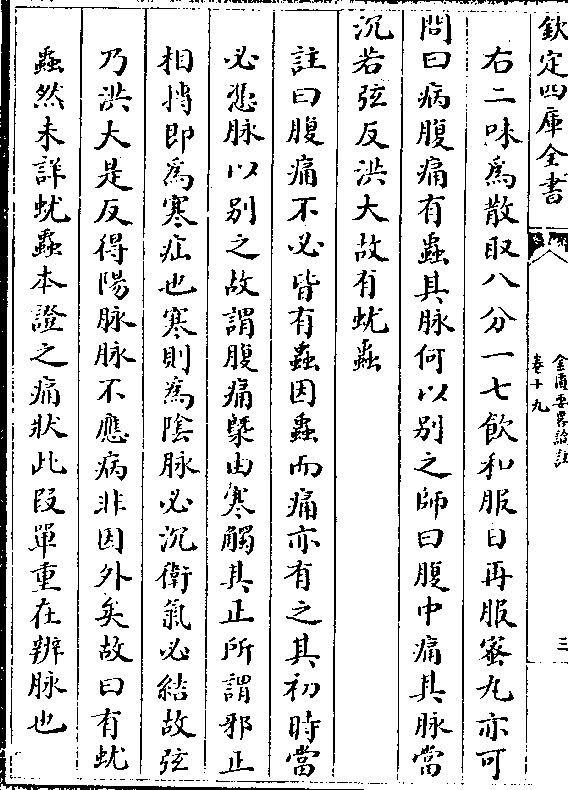 欽定四庫全書
金匱要畧論註
卷十九
三
右二味為散取八分一七飲和服日再服蜜丸亦可
問曰病腹痛有蟲其脉何以别之師曰腹中痛其脉當
沉若弦反洪大故有蚘蟲
註曰腹痛不必皆有蟲因蟲而痛亦有之其初時當
必慿脉以别之故謂腹痛槩由寒觸其正所謂邪正
相搏即為寒疝也寒則為隂脉必沉衛氣必結故弦
乃洪大是反得陽脉脉不應病非因外矣故曰有蚘
蟲然未詳蚘蟲本證之痛狀此段單重在辨脉也